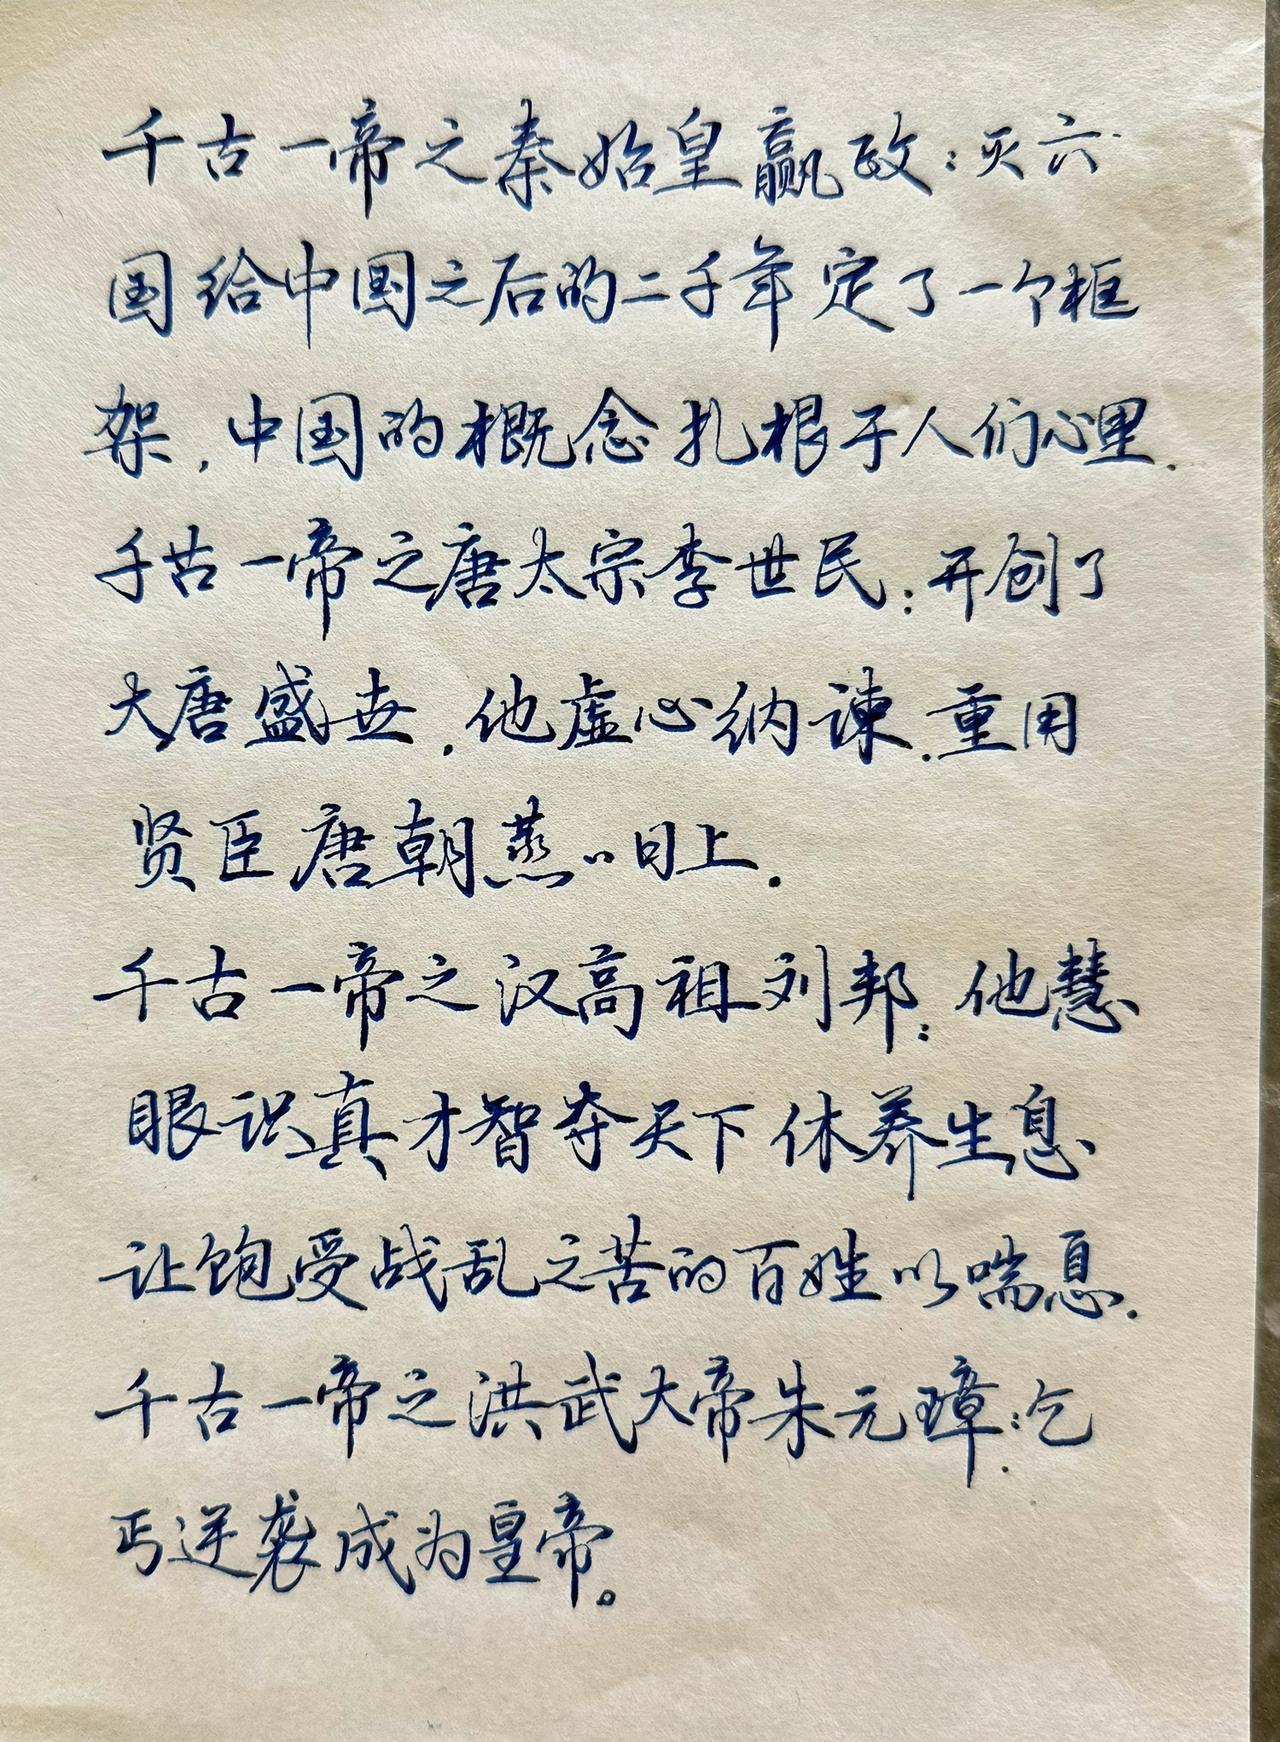 千古一帝之秦始皇赢政:灭六
国给中国之后的二千年定了一个框
架,中国的概念扎根于人们心里.
千古一帝之唐太宗李世民:开创了
大唐盛世.他虚心纳谏.重用
贤臣唐朝蒸〃日上.
千古一帝之汉高祖刘邦:他慧
眼识真才智夺天下休养生息
让饱受战乱之苦的百姓以喘息.
千古一帝之洪武大帝朱元璋:乞
丐逆袭成为皇帝。